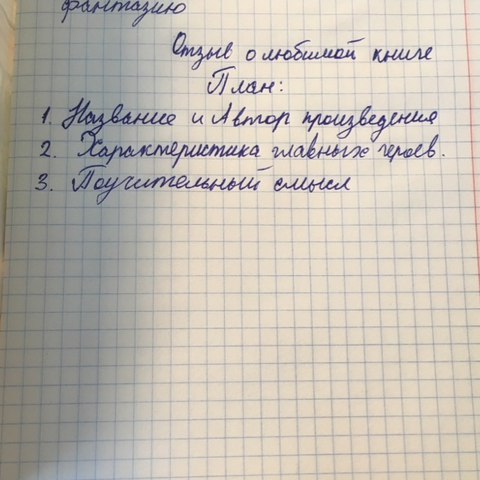 фантазию
Отзыв о любимой книге
План:
1. Название и Автор произведения
2. Характеристика главных героев.
3. Поучительный смысл